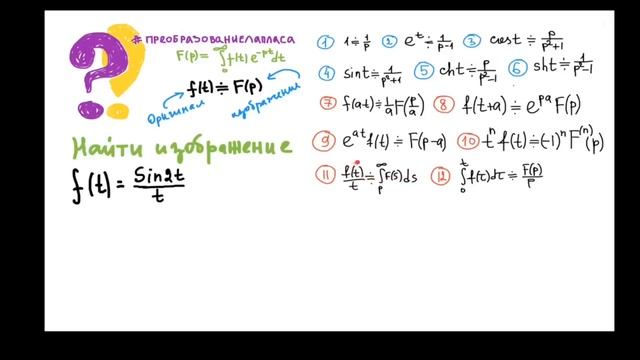 #ПРЕОБРАЗОВАНИЕЛАПЛАСА
F(p)= ∫₀^∞ f(t) e^{-pt} dt
f(t) ≓ F(p)
Оригинал
изображение
Найти изображение
f(t) = Sin2t/t
① 1 ≓ 1/p ② e^t ≓ 1/(p-1) ③ cost ≓ p/(p²+1)
④ sint ≓ 1/(p²+1) ⑤ cht ≓ p/(p²-1) ⑥ sht ≓ 1/(p²-1)
⑦ f(a·t) ≓ 1/a F(p/a) ⑧ f(t+a) ≓ e^{pa} F(p)
⑨ e^{at} f(t) ≓ F(p-a) ⑩ t^n f(t) ≓ (-1)^n F^{(n)}(p)
⑪ f(t)/t ≓ ∫_p^∞ F(s)ds ⑫ ∫₀^t f(τ)dτ ≓ F(p)/p